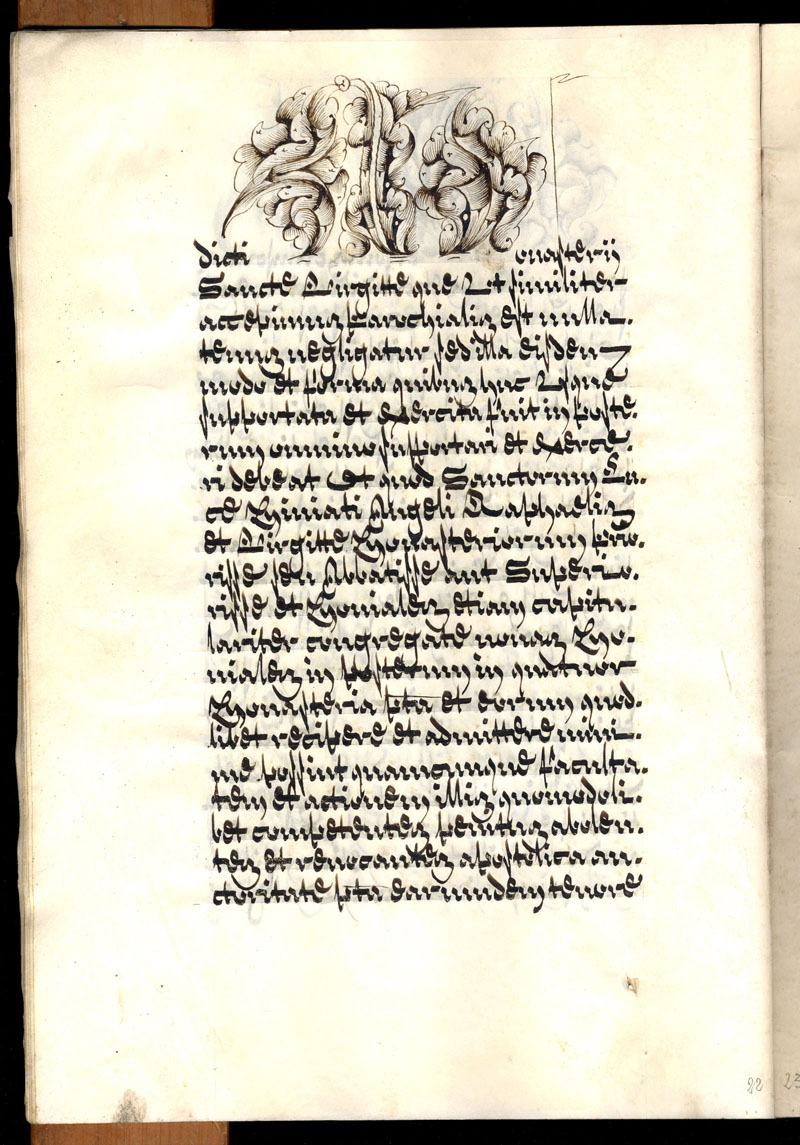 dicti Monasterij
Sancte Birgitte que Ut similiter
accepimus Parochialis est nulla-
tenus negligatur sed illa eisdem
modo et forma quibus huc Usque
supportata et exercita fuit in poste-
rum omnino supportari et exerce-
ri debeat Et quod Sanctorum Lu-
ce Miniati Angeli Raphaelis
et Birgitte Monasteriorum prio-
risse seu Abbatisse aut Superio-
risse et Moniales etiam capitu-
lariter congregate nouas Mo-
niales in posterum in quatuor
Monasteria pta et eorum quod-
libet recipere et admittere mini-
me possint quamcunque faculta-
tem et actionem illis quomodoli-
bet competentes penitus abolen-
tes et reuocantes apostolica au-
ctoritate pta earundem tenore
22 23